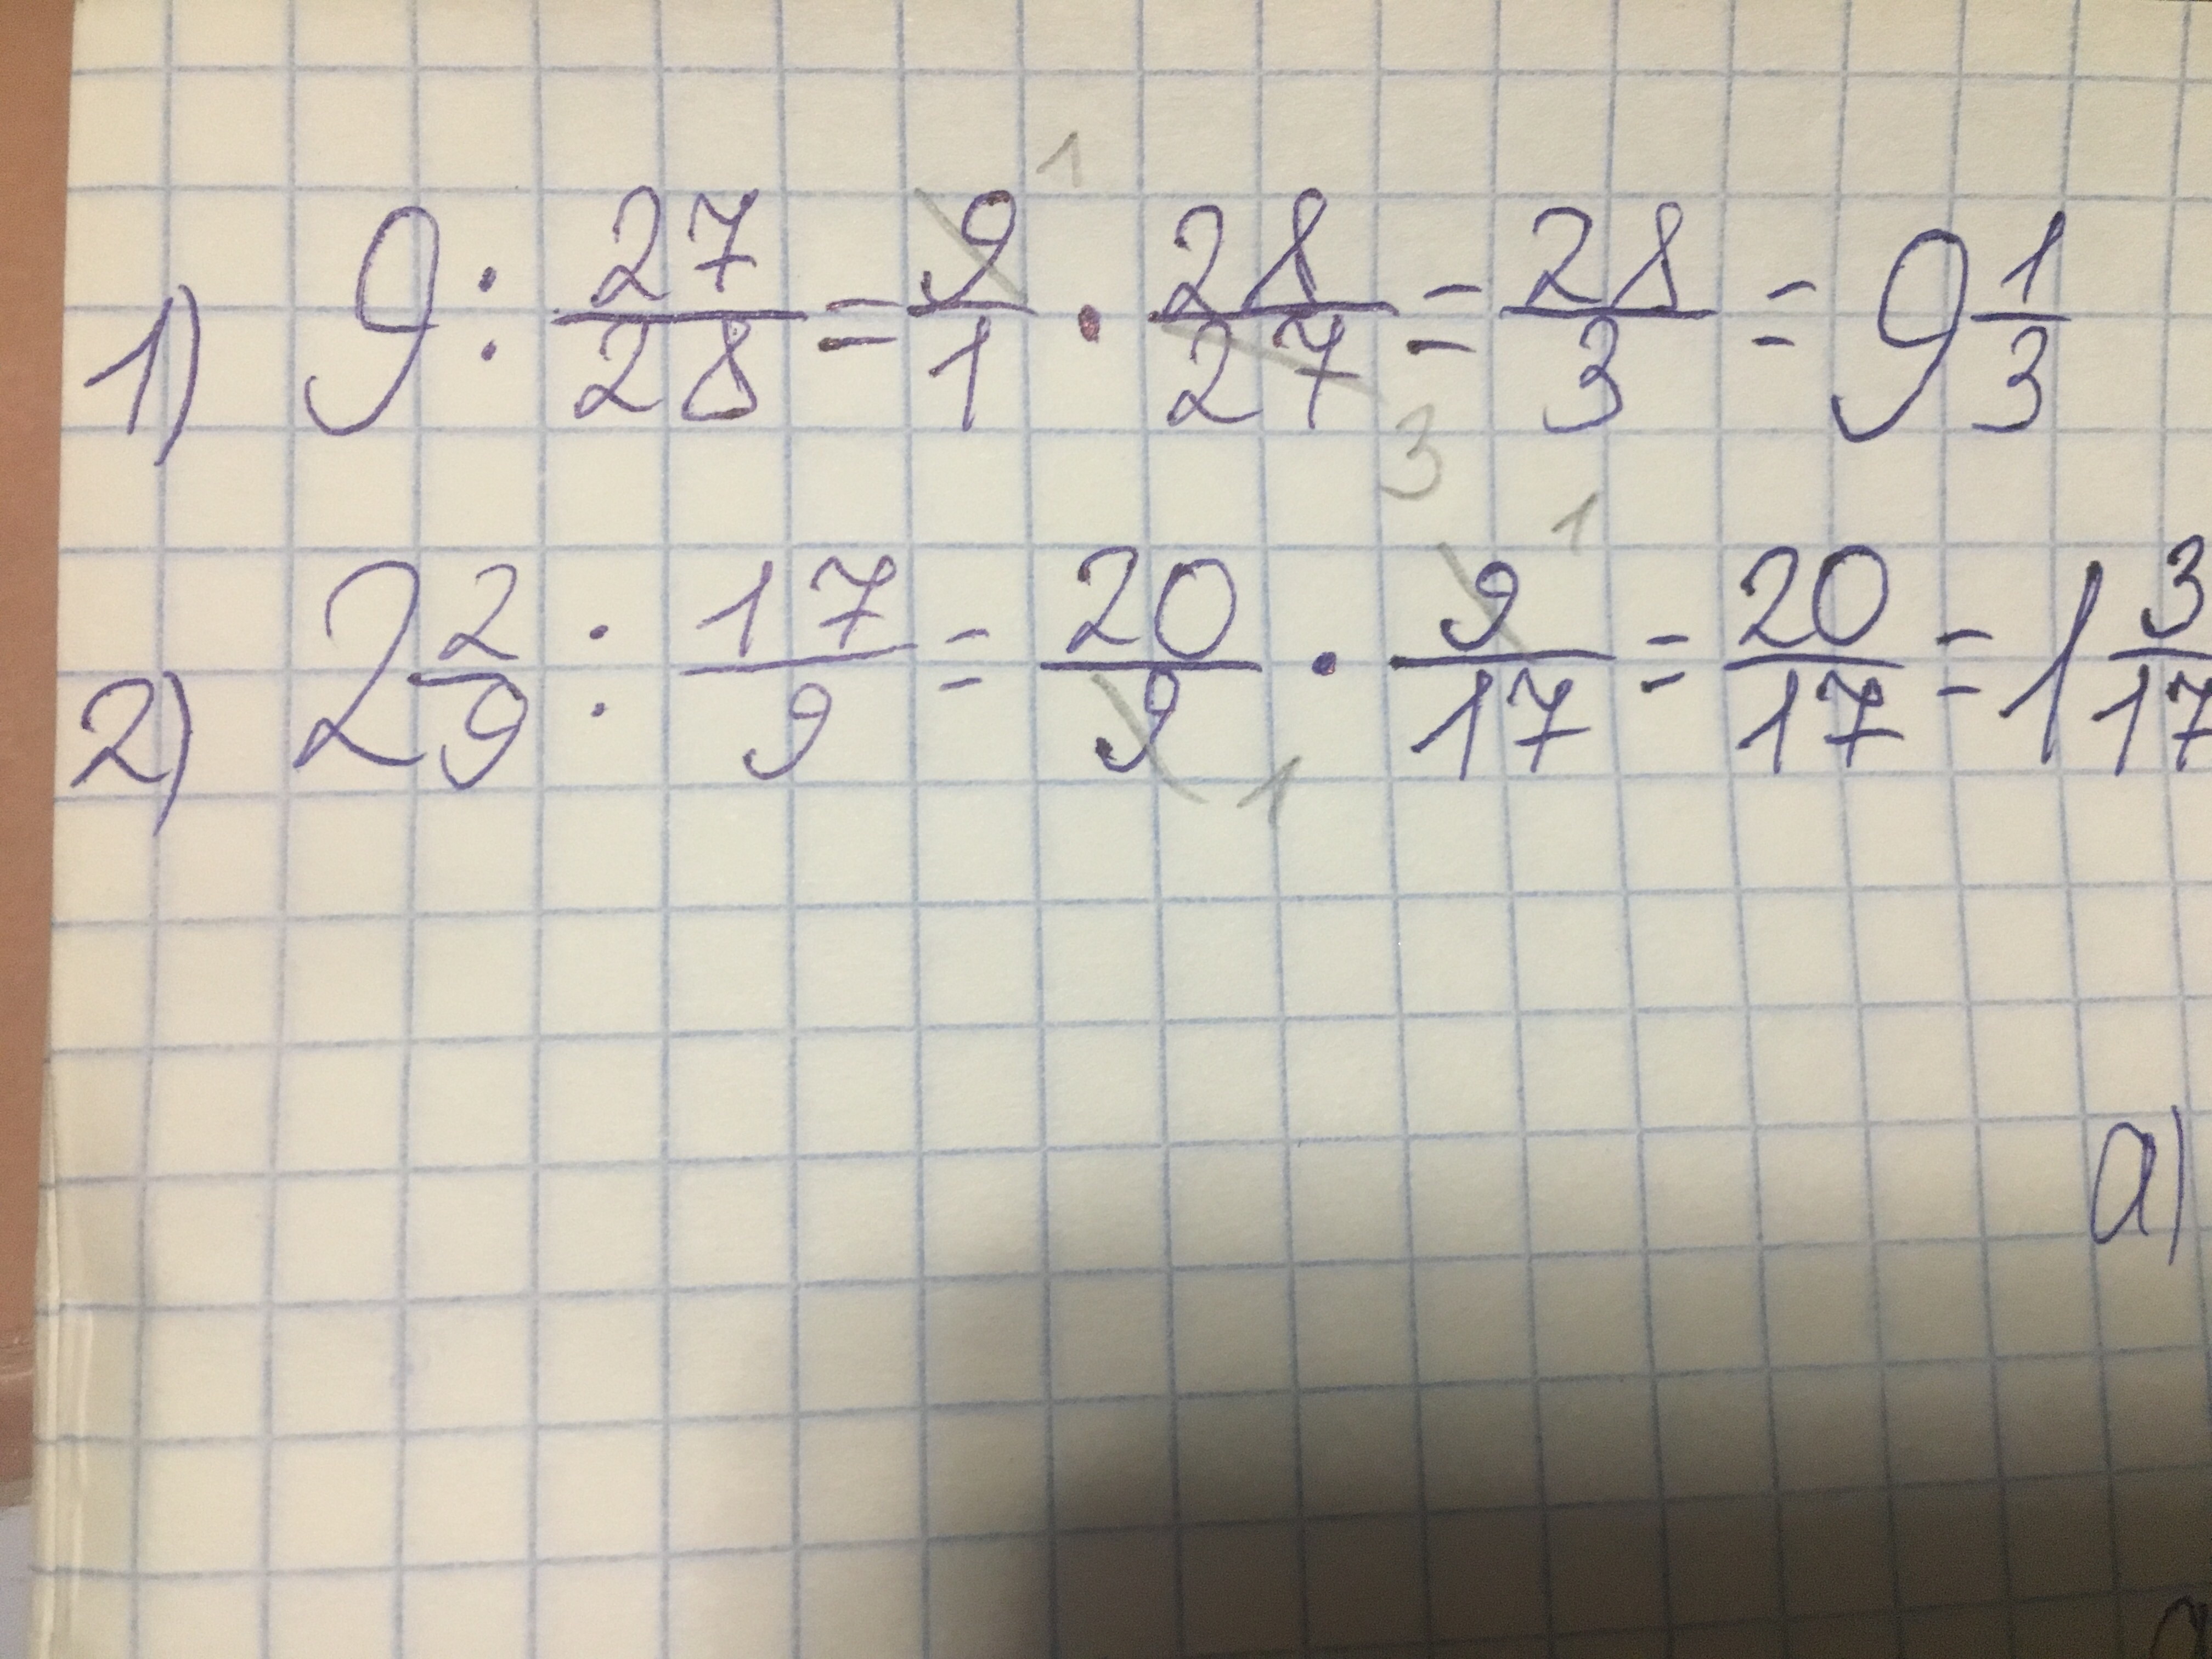 1) 9 : 27/28 = 9/1 · 28/27 = 28/3 = 9 1/3
1
3
2) 2 2/9 : 17/9 = 20/9 · 9/17 = 20/17 = 1 3/17
1
1
а)